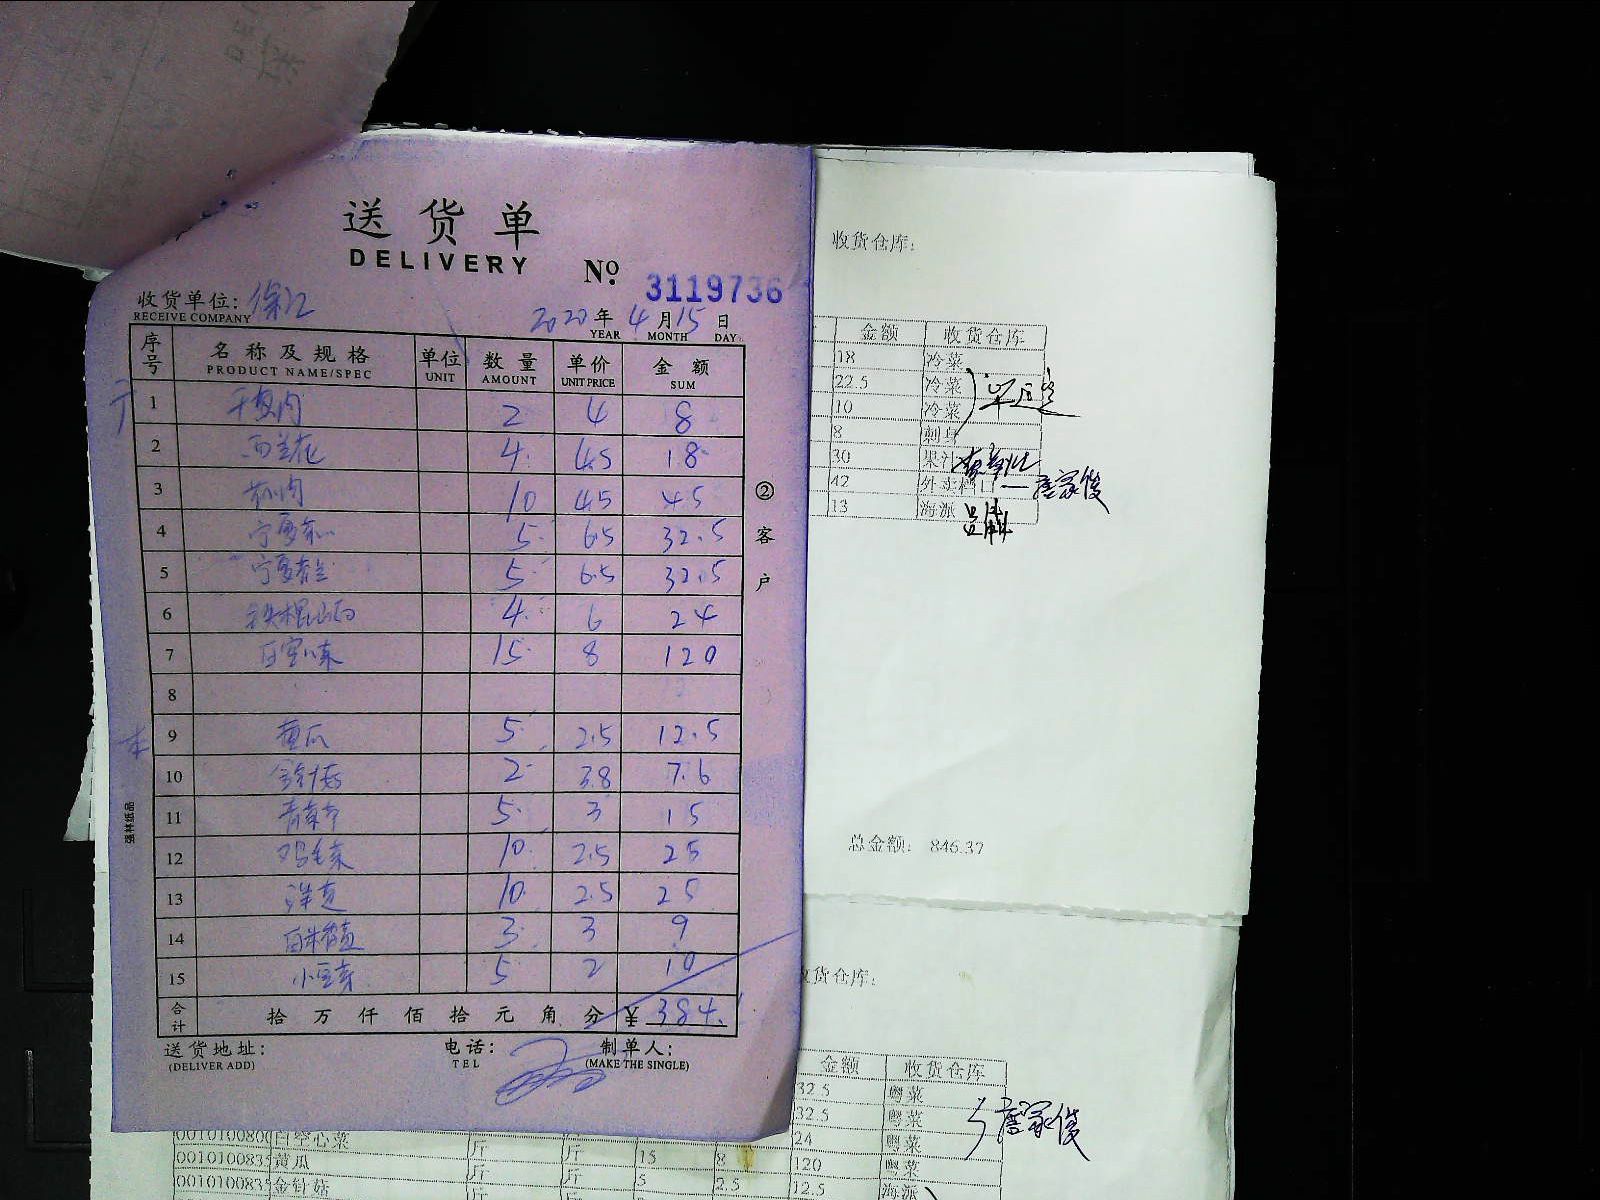 送货单
DELIVERY
No. 3119736
收货单位: 徐汇
RECEIVE COMPANY
2020 年 4 月 15 日
YEAR MONTH DAY
序号 名称及规格 单位 数量 单价 金额
PRODUCT NAME/SPEC UNIT AMOUNT UNIT PRICE SUM
1 2 4 8
2 西兰花 4 4.5 18
3 10 4.5 45
4 宁夏菜心 5 6.5 32.5
5 宁夏芥兰 5 6.5 32.5
6 铁棍山药 4 6 24
7 白空心菜 15 8 120
8
9 黄瓜 5 2.5 12.5
10 金针菇 2 3.8 7.6
11 5 3 15
12 鸡毛菜 10 2.5 25
13 洋葱 10 2.5 25
14 3 3 9
15 小豆芽 5 2 10
合计 拾万仟佰拾元角分 ¥ 384.
送货地址: 电话: 制单人:
(DELIVER ADD) TEL (MAKE THE SINGLE)
②客户
强林纸品
收货仓库:
金额 收货仓库
18 冷菜
22.5 冷菜
10 冷菜
8 刺身
30 果汁
42 外卖档口
13 海派
总金额: 846.37
收货仓库:
金额 收货仓库
32.5 粤菜
32.5 粤菜
24 粤菜
白空心菜 斤 斤 15 8 120 粤菜
0010100835 黄瓜 斤 斤 5 2.5 12.5 海派
0010100835 金针菇